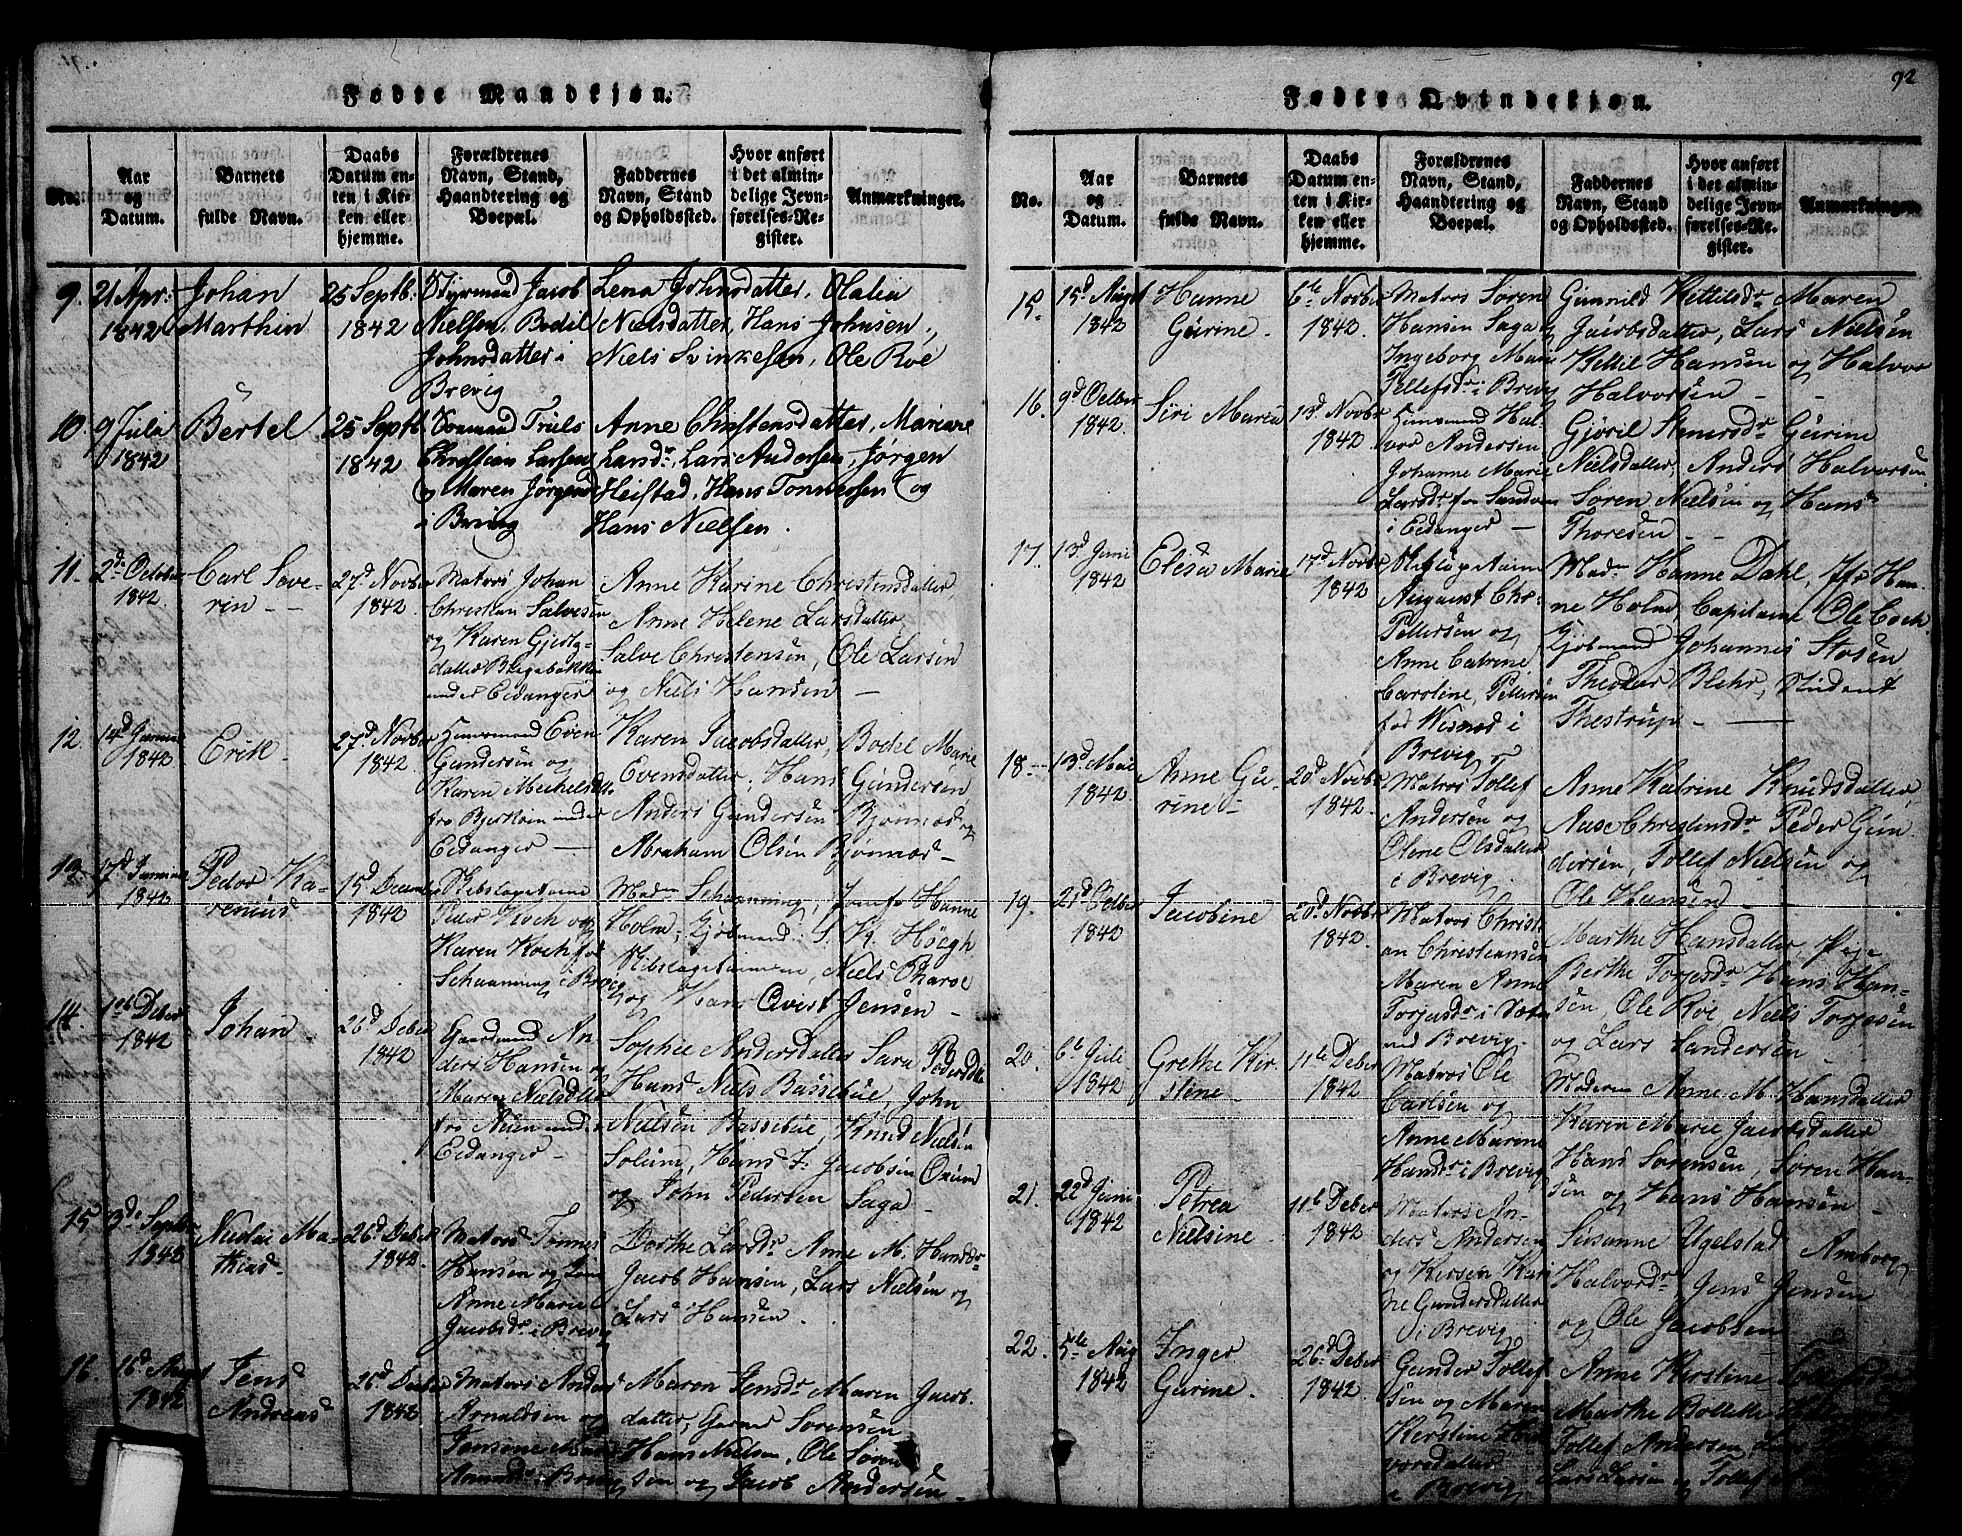 92
Fødte Mandkjøn.
No.
Aar og Datum.
Barnets fulde Navn.
Daabs Datum enten i Kirken eller hjemme.
Forældrenes Navn, Stand, Haandtering og Boepæl.
Faddernes Navn, Stand og Opholdssted.
Hvor anført i det almindelige Jevnførelses-Register.
Anmærkninger.
9. 21 Apr: 1842
Johan Marthin
25 Septb. 1842
Jacob Nielsen, Bodil Johnsdatter i Brevig
Lena Johnsdatter, Olalia
Nielsdatter, Hans Johnsen,
Niels Svinkesen, Ole Roe
10. 9 Julii 1842
Bertel
25 Septb. 1842
Truls Christian Larsen og Maren Jørgensd. i Brevig
Anne Christensdatter, Mariane
Larsdr, Lars Andersen, Jørgen
Heistad, Hans Tønnesen og
Hans Nielsen.
11. 2d October 1842
Carl Severin
27d Novbr 1842
Matros Johan
Christian Salvesen
og Karen
datter
under Eidanger
Anne Karine Christensdatter,
Anne Helene Larsdatter,
Salve Christensen, Ole Larsen
og Niels Hansen
12. 14d 1842
Erik
27d Novbr 1842
Huusmand Even
Gundersen og
Karen
fra under
Eidanger
Karen Jacobsdatter, Bodel Marie
Evensdatter, Hans Gundersen,
Anders Gundersen Bjønnæs og
Abraham Olsen Bjønnæs
13. 17d 1842
Peder Karenius
15d December 1842
Peder Koch og
Karen Koch fød
Schaanning i Brevig
Madm Schaanning, Jomfr Hanne
Holm, Kjøbmand S. K. Höegh
Niels
og Hans Qvist Jensen
14. 1ste Deber 1842
Johan
26d Deber 1842
Gaardmand Anders Hansen og
Maren Nielsdtr
fra under
Eidanger
Sophie Andersdatter Sara Pedersdtr
Hans Niels Bassebue, John
Nielsen Bassebue, Knud Nielsen
Solum, Hans J. Jacobsen
og John Pedersen Saga
15 3die Septbr 1842
Nicolai Mathias
26d Deber 1842
Matros Tønnes
Hansen og
Anne Marie
Jacobsdr i Brevig
Dorthe Larsdr Anne M. Hansdr
Jacob Hansen, Lars Nielsen og
Lars Hansen.
16. 16d 1842
Jens Andreas
26d Deber 1842
Matros Anders
Arnoldsen og
i Brevig
Maren Jensdr Maren Jacobsdatter,
Sørensen
Hans Nielsen, Ole Sørensen og Jacob Andersen
Fødte Qvindekjøn.
No.
Aar og Datum.
Barnets fulde Navn.
Daabs Datum enten i Kirken eller hjemme.
Forældrenes Navn, Stand, Haandtering og Boepæl.
Faddernes Navn, Stand og Opholdssted.
Hvor anført i det almindelige Jevnførelses-Register.
Anmærkninger.
15. 15d August 1842
Hanne Gurine.
6te Novbr 1842.
Matros Søren
Hansen Saga og
Ingeborg Marie
Tellefsdr i Brevig
Gunnild Kittilsdr Maren
Jacobsdatter, Lars Nielsen
Kittil Hansen og Halvor
Halvorsen
16. 9d Octbr 1842.
Siri Maria
13d Novbr 1842.
Huusmand Halvor Andersen
Johanne Marie
Larsdr fra
i Eidanger
Gjøril Stenersdr Gurine
Nielsdatter, Anders Halvorsen
Søren Nielsen og Hans
Thoresen
17. 13d Juni 1842
Elesa Marie
17d Novbr 1842
August Chr.
Pettersen og
Anne Catrine
Caroline Pettersen
fød i
Brevig
Madm Hanne Dahl, Jfr Hanne Holm, Capitaine Ole Coch.
Kjøbmand Johannes Stosen
Theodor Blehr, Student
Thestrup
18. 13d Mai 1842
Anne Gurine
20d Novbr 1842.
Matros Tollef
Andersen og
Olene Olsdatter
i Brevig.
Anne Katrine Knudsdatter,
Aase Christensdr Peder Gundersen, Tollef Nielsen og
Ole Hansen
19. 21d Octber 1842
Jacobine
20d Novbr 1842.
Matros Christian Christiansen
Maren Anne
Torjusdr i
ved Brevig
Marthe Hansdatter,
Berthe Torjusdr Hans Hansen, Ole Roe, Niels Torjesen
og Lars Sandersen
20. 6te Juli 1842
Grethe Kirstine
11te Deber 1842
Matros Ole
Carlsen og
Anne Marine
Hansdr i Brevig
Maderen Anne M. Hansdatter
Karen Marie Jacobsdatter
Hans Sørensen, Søren Hansen og Hans Hansen
21. 22d Juni 1842
Petrea Nielsine
11te Deber 1842
Matros Anders Andersen
og Kirsten Karine Gundersdatter
i Brevig
Susanne Ugelstad
Halvorsdr, Jens Jensen
og Ole Jacobsen
22. 5te Aug 1842
Inger Gurine.
26d Deber 1842
Gunder Tollefsen og Maren
Kirstine Halvorsdatter
i Brevig
Anne Kirstine Tollefsdr
Marthe Bollette
Tollef Andersen,
Lars Larsen og Tollef